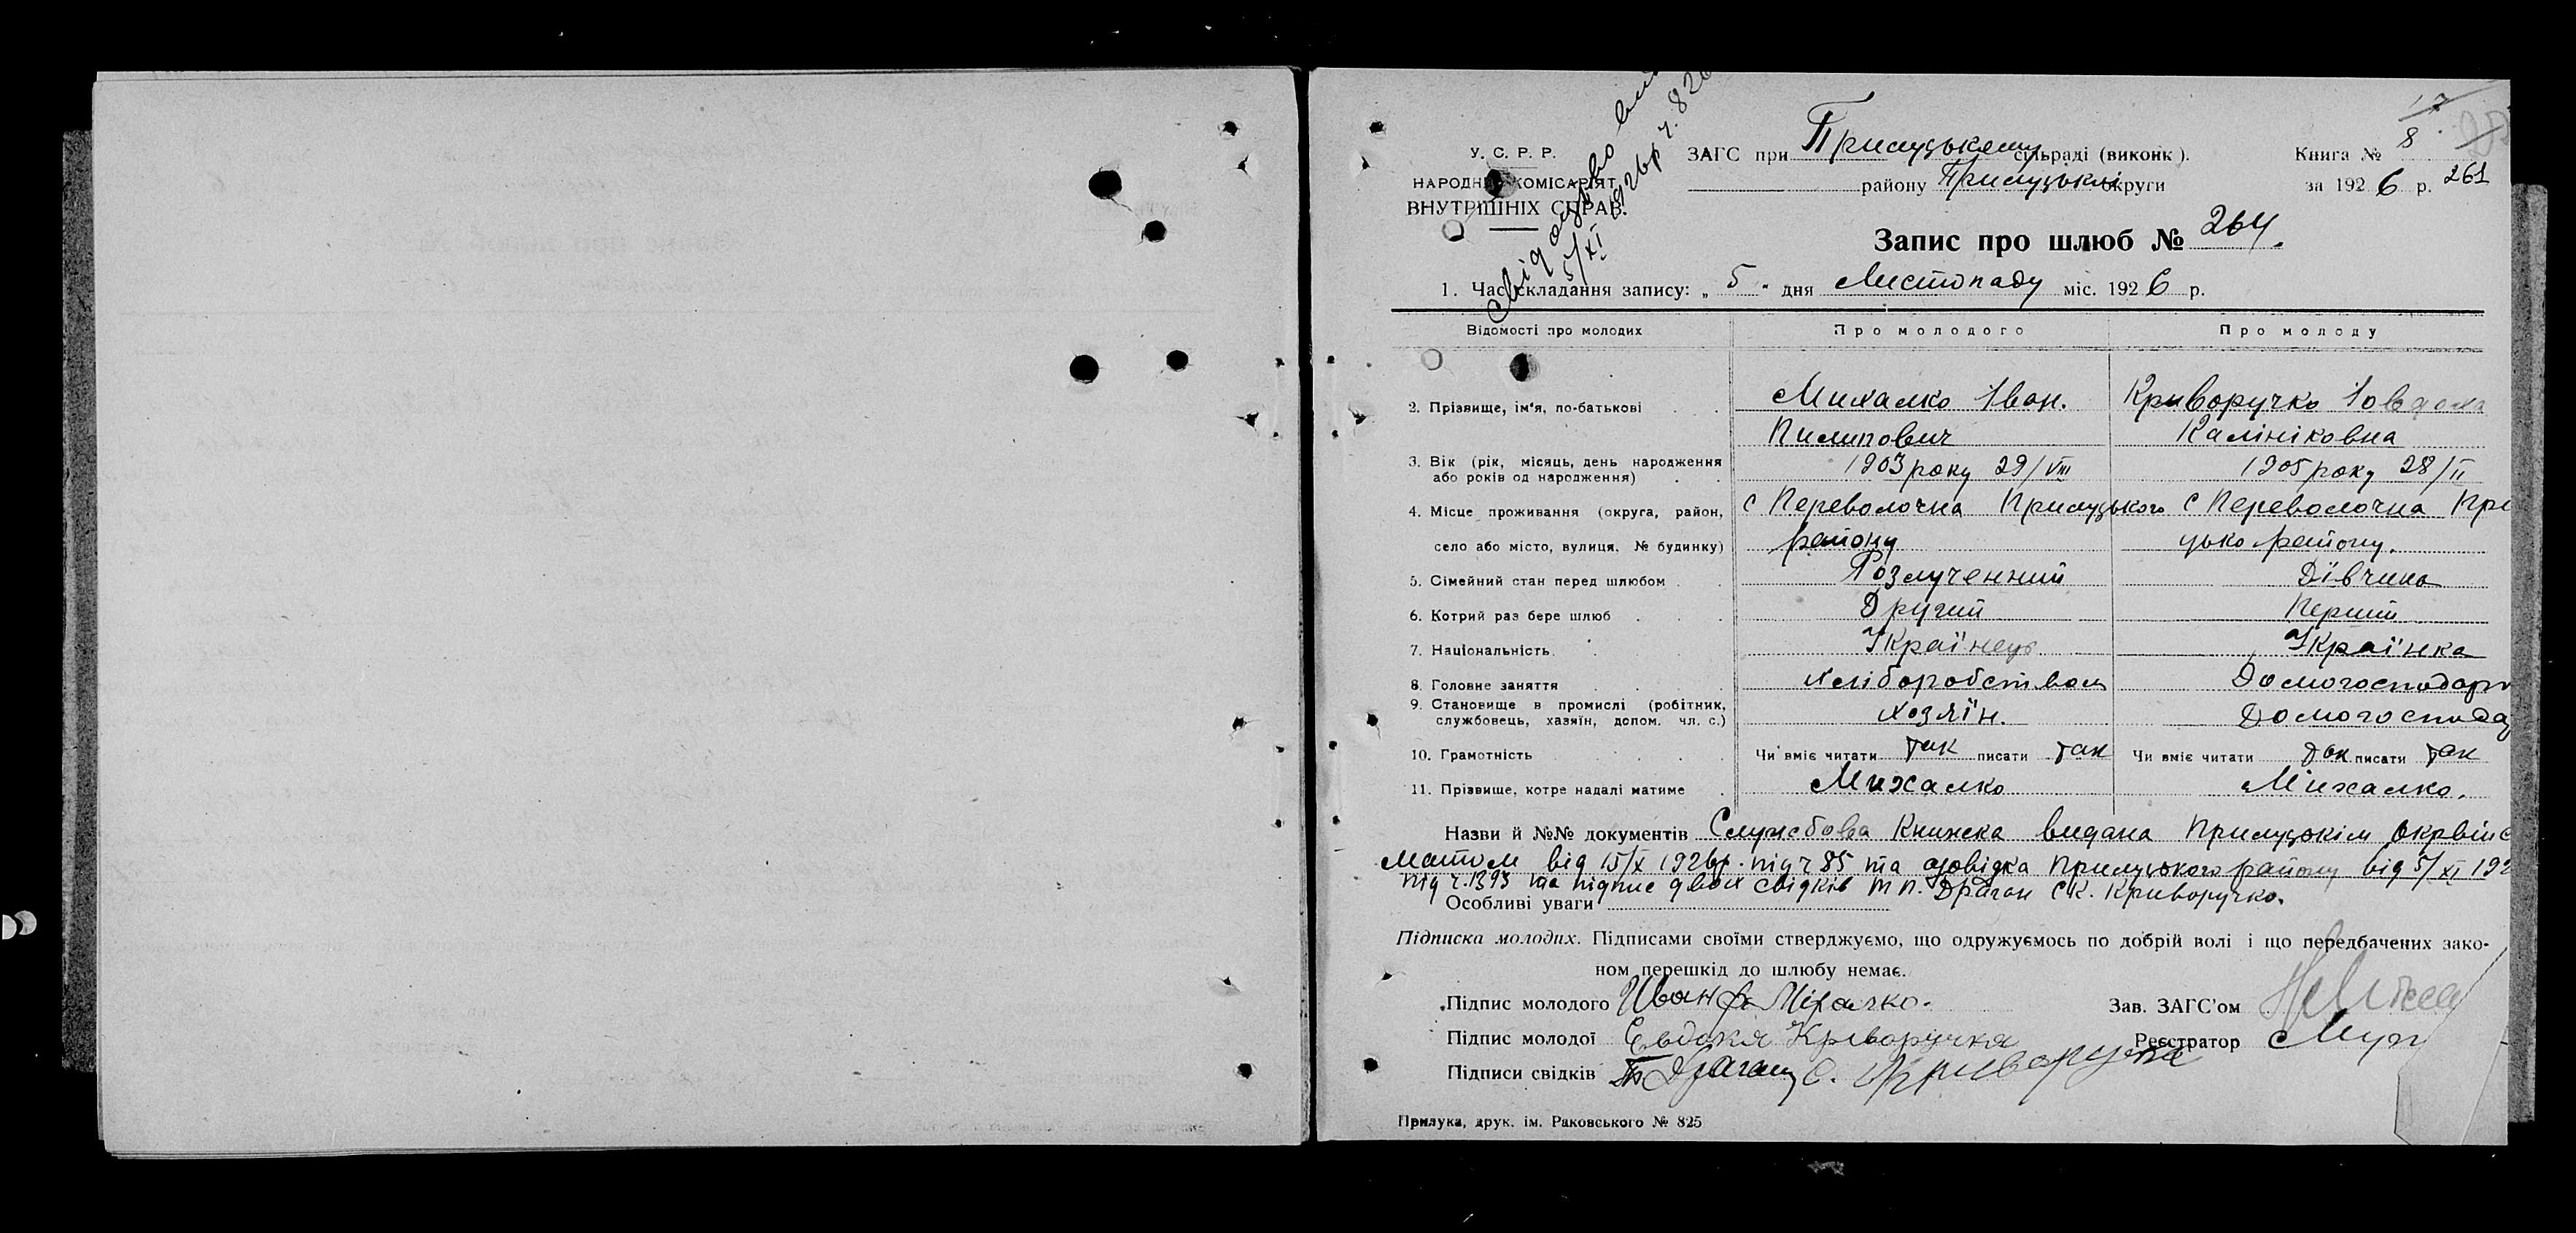 У. С. Р. Р.
НАРОДНИЙ КОМІСАРІЯТ
ВНУТРІШНІХ СПРАВ.
Свідоцтво
5/XI 1926р ч. 826
ЗАГС при Прилуцькому сільраді (виконк).
району Прилуцької округи
Книга № 8
за 1926 р. 261
Запис про шлюб № 264.
1. Час складання запису: „ 5 " дня Листопаду міс. 1926 р.
Відомості про молодих Про молодого Про молоду
2. Прізвище, ім'я, по-батькові Михалко Іван. Криворучко Іовдоха
Пилипович Калініковна
3. Вік (рік, місяць, день народження 1903 року 29/VIII 1905 року 28/II
або років од народження)
4. Місце проживання (округа, район, с Переволочна Прилуцького с Переволочна При
село або місто, вулиця, № будинку) району цько району.
5. Сімейний стан перед шлюбом Розлученний Дівчина
6. Котрий раз бере шлюб Другий Перший
7. Національність Українець Українка
8. Головне заняття Хліборобством Домогосподарк
9. Становище в промислі (робітник,
службовець, хазяїн, допом. чл. с.) Хозяїн. Домогоспода
10. Грамотність Чи вміє читати так писати так Чи вміє читати так писати так
11. Прізвище, котре надалі матиме Михалко Михалко.
Назви й №№ документів Служебова Книжка видана Прилуцькім Окрвійс
матом від 15/X 1926р. під ч 85 та довідка Прилуцького району від 5/XI 192
під ч. 1393 та підпис двох свідків т П. Драган С К. Криворучко.
Особливі уваги
Підписка молодих. Підписами своїми стверджуємо, що одружуємось по добрій волі і що передбачених зако-
ном перешкід до шлюбу немає.
Підпис молодого Иван Михалко.
Зав. ЗАГС'ом
Підпис молодої Евдокія Криворучка
Реєстратор
Підписи свідків Драган С. Криворучка
Прилука, друк. ім. Раковського № 825